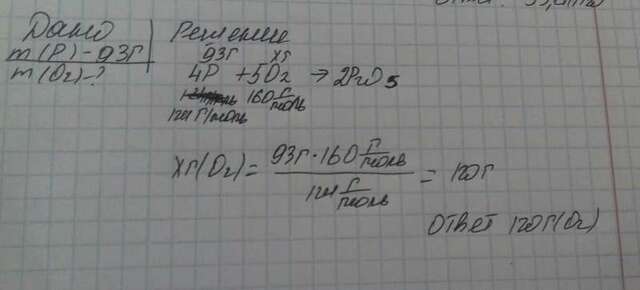 Дано
m(P) - 93г
m(O₂)-?
Решение
93г xг
4P + 5O₂ → 2P₂O₅
160 г/моль
124 г/моль
Xг(O₂) = 93г · 160 г/моль / 124 г/моль = 120г
ответ 120г(O₂)